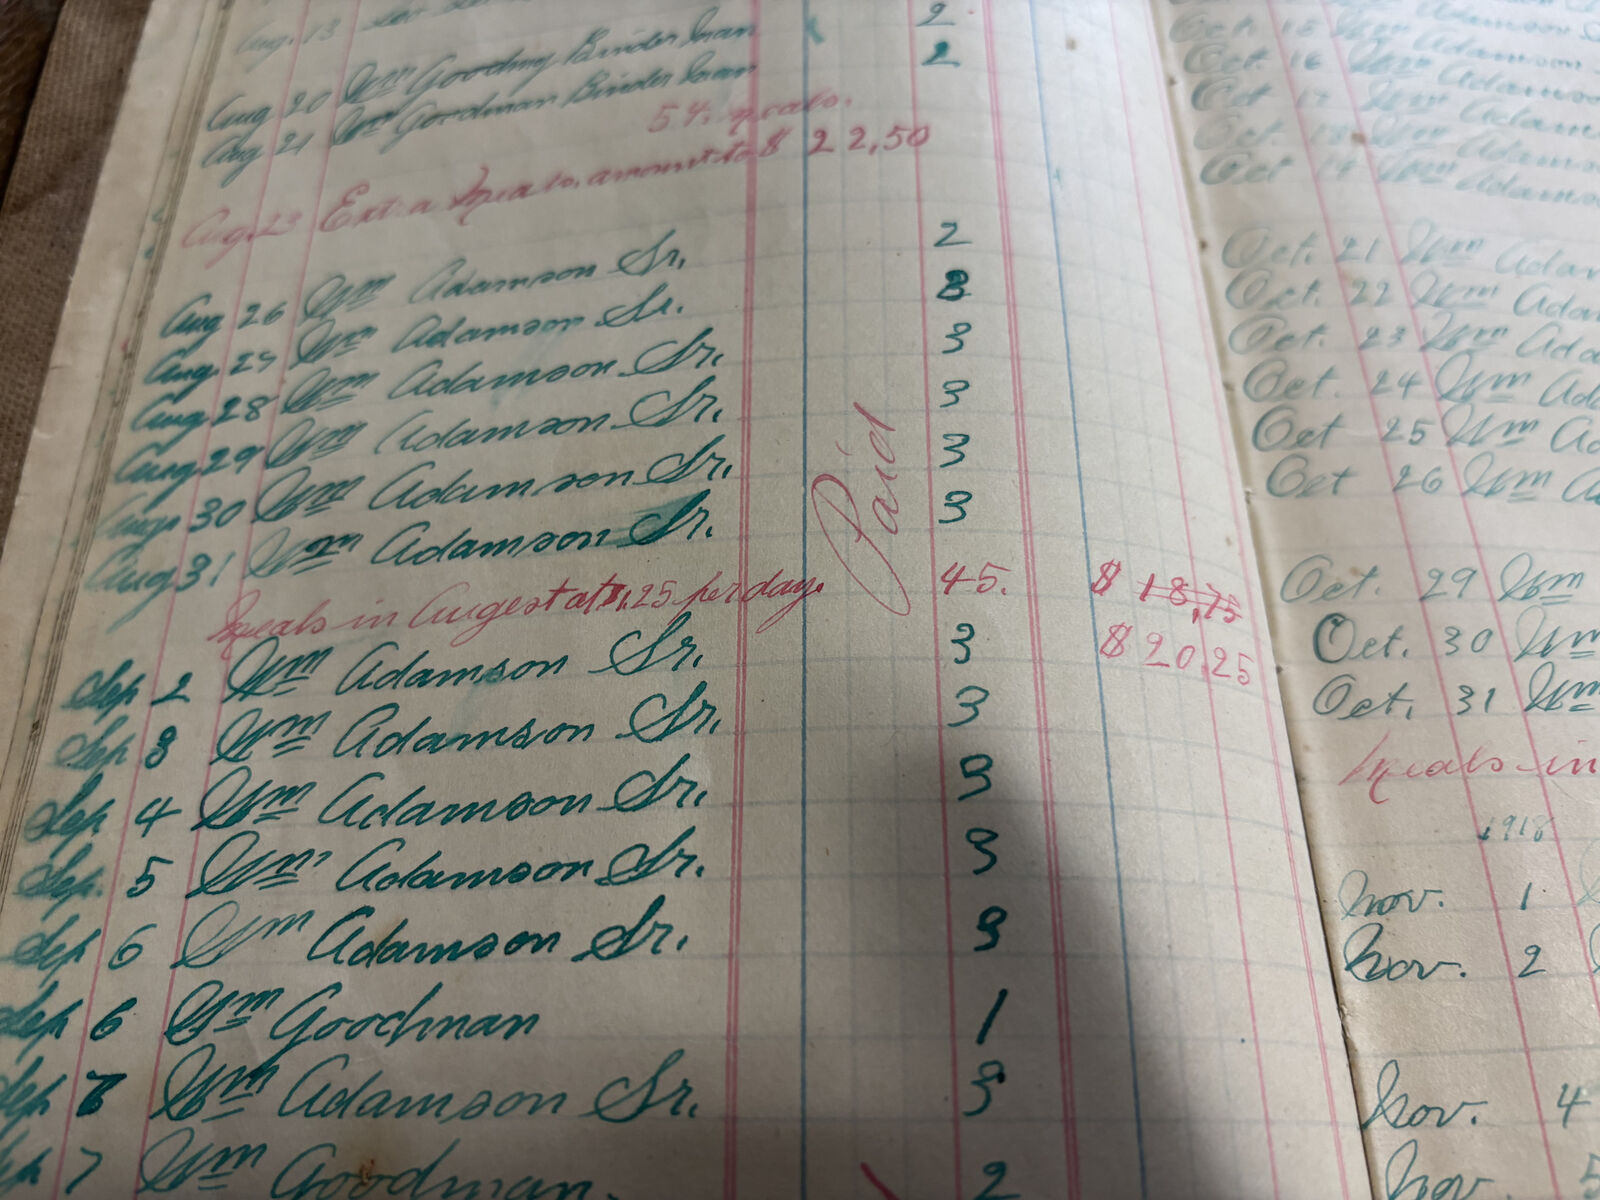 Aug. 13
2
Aug 20 Wm Gooding Binder man 2
Aug 21 Wm Goodman Binder man
54. meals.
Aug. 23 Extra meals. amount to $ 22,50
Aug 26 Wm Adamson Sr. 2
Aug. 27 Wm Adamson Sr. 3
Aug 28 Wm Adamson Sr. 3
Aug 29 Wm Adamson Sr. 3
Aug. 30 Wm Adamson Sr. 3
Aug 31 Wm Adamson Sr. 3
Paid
Meals in Augest at $1,25 per day. 45. $ 18,75
$ 20,25
Sep 2 Wm Adamson Sr. 3
Sep 3 Wm Adamson Sr. 3
Sep 4 Wm Adamson Sr. 3
Sep. 5 Wm Adamson Sr. 3
Sep 6 Wm Adamson Sr. 3
Sep 6 Wm Goodman 1
Sep 7 Wm Adamson Sr. 3
Sep 7 Wm Goodman. 2
Oct 15 Wm Adamson
Oct. 16 Wm Adamson
Oct 17 Wm Adam
Oct. 18 Wm Adams
Oct 19 Wm Adams
Oct. 21 Wm Adam
Oct. 22 Wm Adam
Oct. 23 Wm Ada
Oct. 24 Wm Ad
Oct 25 Wm Ad
Oct 26 Wm A
Oct. 29 Wm
Oct. 30 Wm
Oct. 31 Wm
Meals in
1918
Nov. 1
Nov. 2
Nov. 4
Nov. 5